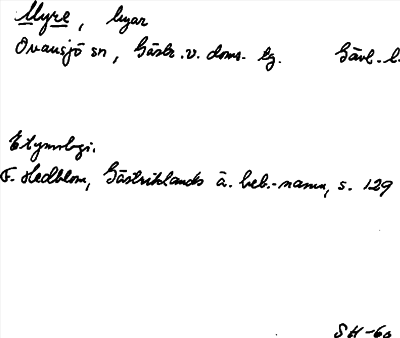 Myre, byar
Ovansjö sn, Gästr. v. doms. tg. Gävl. l.
Etymologi.
F. Hedblom, Gästriklands ä. beb.-namn, s. 129
SH-60